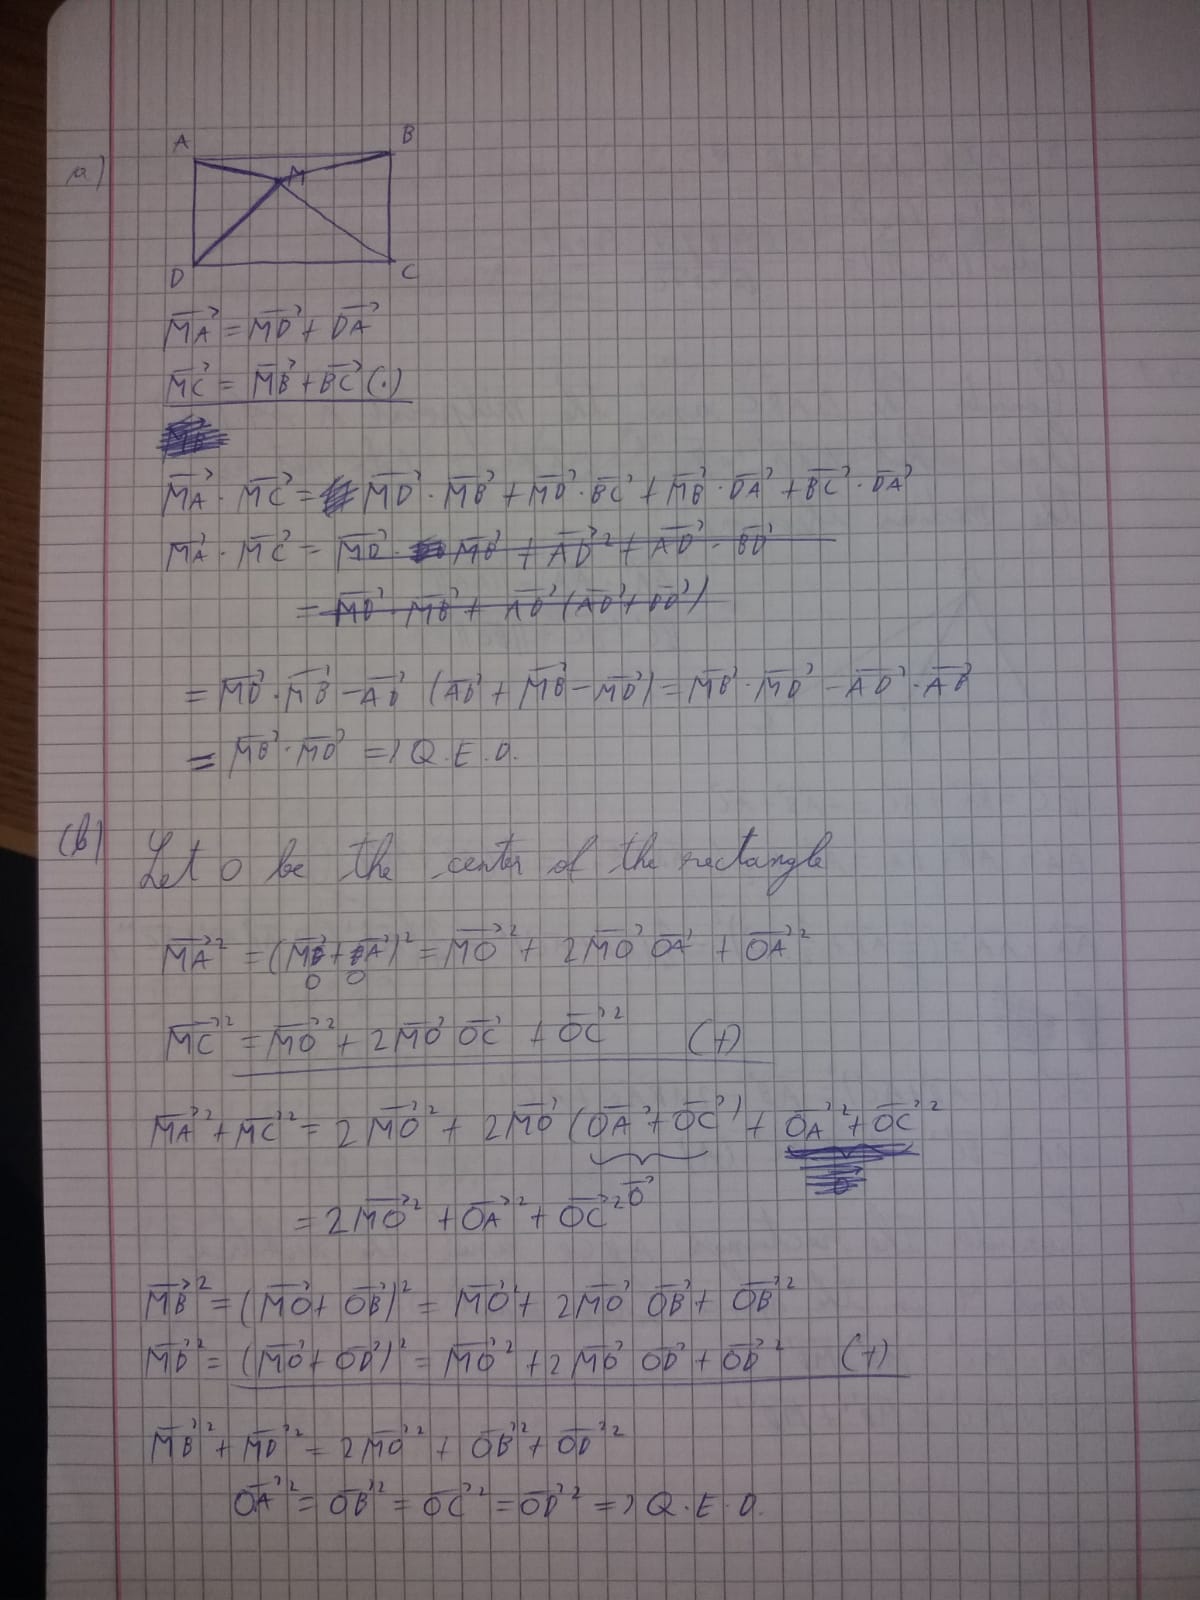 a)
A B
M
D C
MA⃗ = MD⃗ + DA⃗
MC⃗ = MB⃗ + BC⃗ (·)
MA⃗ · MC⃗ = MD⃗ · MB⃗ + MD⃗ · BC⃗ + MB⃗ · DA⃗ + BC⃗ · DA⃗
MA⃗ · MC⃗ = MD⃗ · MB⃗ + AD⃗² + AD⃗ · BD⃗
= MD⃗ · MB⃗ + AD⃗ (AD⃗ + BD⃗)
= MD⃗ · MB⃗ − AD⃗ (AD⃗ + MB⃗ − MD⃗) = MB⃗ · MD⃗ − AD⃗ · AB⃗
= MB⃗ · MD⃗ => Q.E.D.
(b) Let O be the center of the rectangle
MA⃗² = (MO⃗ + OA⃗)² = MO⃗² + 2MO⃗ OA⃗ + OA⃗²
MC⃗² = MO⃗² + 2MO⃗ OC⃗ + OC⃗² (+)
MA⃗² + MC⃗² = 2MO⃗² + 2MO⃗ (OA⃗ + OC⃗) + OA⃗² + OC⃗²
O⃗
= 2MO⃗² + OA⃗² + OC⃗²
MB⃗² = (MO⃗ + OB⃗)² = MO⃗² + 2MO⃗ OB⃗ + OB⃗²
MD⃗² = (MO⃗ + OD⃗)² = MO⃗² + 2MO⃗ OD⃗ + OD⃗² (+)
MB⃗² + MD⃗² = 2MO⃗² + OB⃗² + OD⃗²
OA⃗² = OB⃗² = OC⃗² = OD⃗² => Q.E.D.